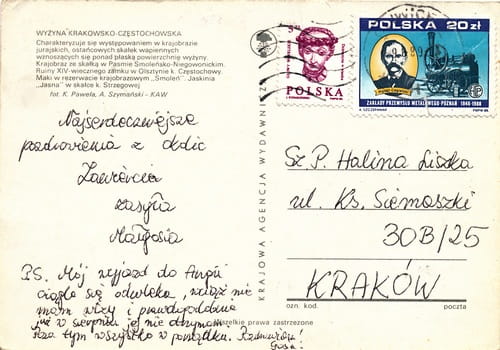 WYŻYNA KRAKOWSKO-CZĘSTOCHOWSKA
Charakteryzuje się występowaniem w krajobrazie
jurajskich, ostańcowych skałek wapiennych
wznoszących się ponad płaską powierzchnię wyżyny.
Krajobraz ze skałką w Paśmie Smoleńsko-Niegowonickim.
Ruiny XIV-wiecznego zamku w Olsztynie k. Częstochowy
Maki w rezerwacie krajobrazowym „Smoleń". Jaskinia
„Jasna" w skałce k. Strzegowej
fot. K. Pawela, A. Szymański - KAW
Najserdeczniejsze
pozdrowienia z okolic
Zawiercia
zasyła
Małgosia
P.S. Mój wyjazd do Anglii
ciągle się odwleka, wciąż nie
mam wizy i prawdopodobnie
już w sierpniu jej nie otrzymam
Poza tym wszystko w porządku. Pozdrowienia
Gosia
Wszelkie prawa zastrzeżone
KRAJOWA AGENCJA WYDAWNICZA
POLSKA
POLSKA 20 zł
ZAKŁADY PRZEMYSŁU METALOWEGO-POZNAŃ 1846-1988
Sz. P. Halina Liszka
ul. Ks. Siemaszki
30B/25
KRAKÓW
ozn. kod.
poczta